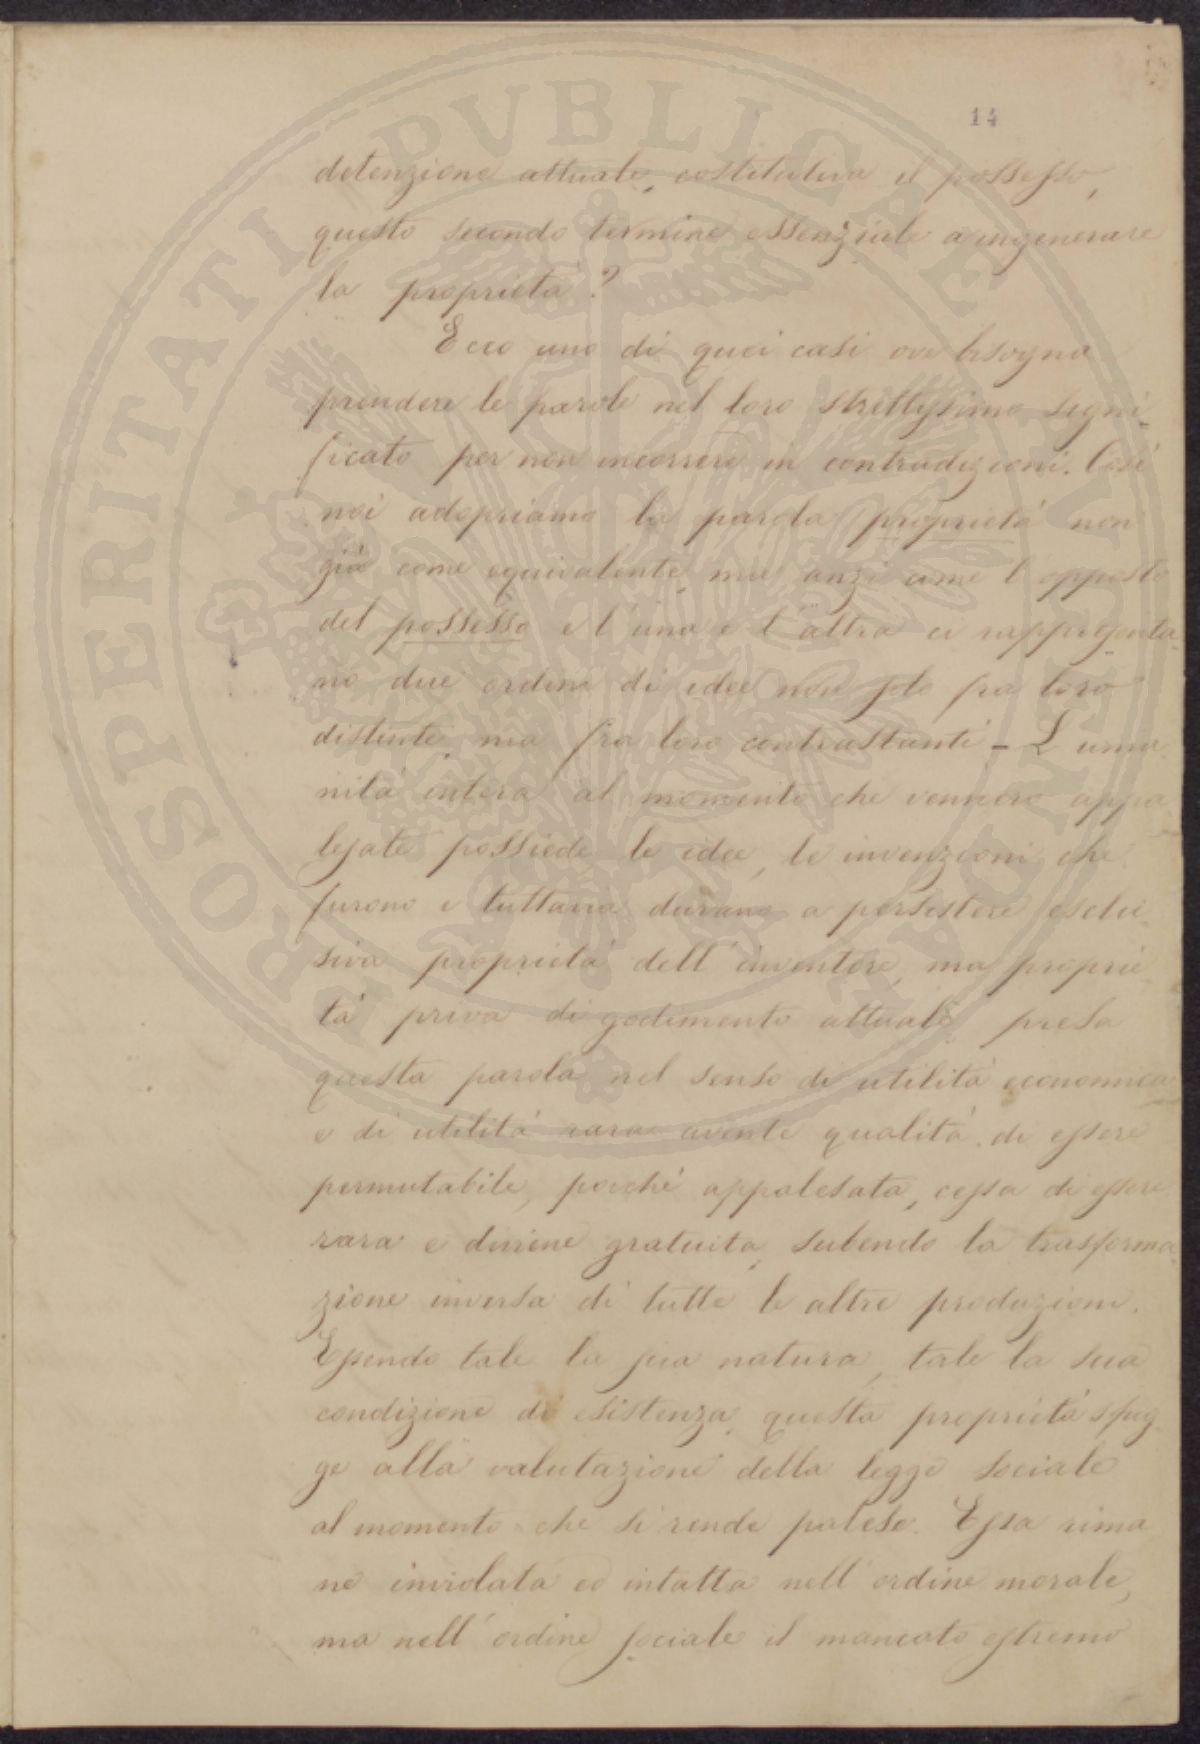 14
detenzione attuale, costitutiva il possesso,
questo secondo termine essenziale a ingenerare
la proprietà?
Ecco uno di quei casi ove bisogna
prendere le parole nel loro strettissimo signi-
ficato per non incorrere in contradizioni. Così
noi adopriamo la parola proprietà non
già come equivalente, ma anzi come l'opposto
del possesso e l'una e l'altra ci rappresenta
no due ordini di idee non solo fra loro
distinte, ma fra loro contrastanti - L'uma
nità intera al momento che vennero appa
lesate possiede le idee, le invenzioni che
furono e tuttavia durano a persistere esclu
siva proprietà dell'inventore, ma proprie
tà priva di godimento attuale, presa
questa parola nel senso di utilità economica
e di utilità rara avente qualità di essere
permutabile, poiché appalesata, cessa di essere
rara e diviene gratuita, subendo la trasforma
zione inversa di tutte le altre produzioni.
Essendo tale la sua natura, tale la sua
condizione di esistenza, questa proprietà sfug
ge alla valutazione della legge sociale
al momento che si rende palese. Essa rima
ne inviolata ed intatta nell'ordine morale,
ma nell'ordine sociale il mancato estremo
PROSPERITATI PVBLICAE AVGENDAE